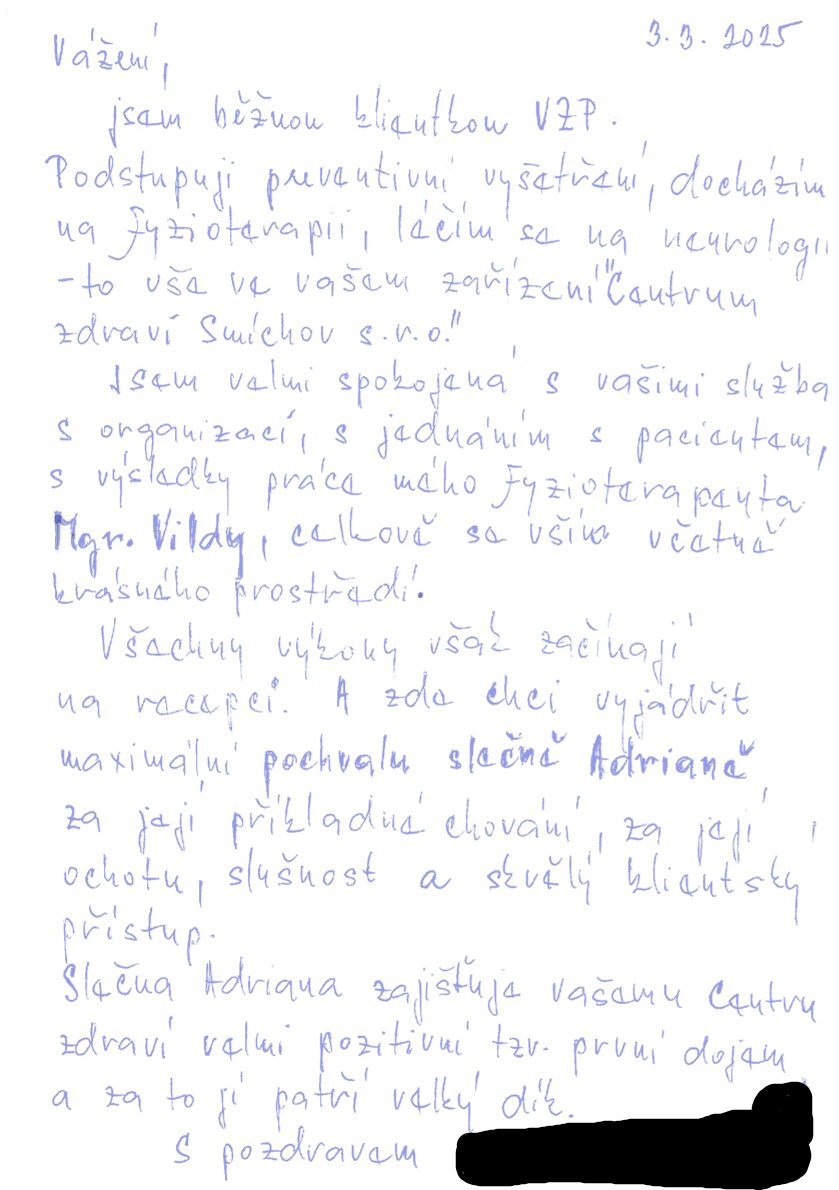 3.3.2025
Vážení,
jsem běžnou klientkou VZP.
Podstupuji preventivní vyšetření, docházím
na fyzioterapii, léčím se na neurologii
- to vše ve vašem zařízení "Centrum
zdraví Smíchov s.r.o."
Jsem velmi spokojená s vašimi služba
s organizací, s jednáním s pacientem,
s výsledky práce mého fyzioterapeuta
Mgr. Vildy, celkově se vším včetně
krásného prostředí.
Všechny výkony však začínají
na recepci. A zde chci vyjádřit
maximální pochvalu slečně Adrianě
za její příkladné chování, za její
ochotu, slušnost a skvělý klientský
přístup.
Slečna Adriana zajišťuje vašemu Centru
zdraví velmi pozitivní tzv. první dojem
a za to jí patří velký dík.
S pozdravem